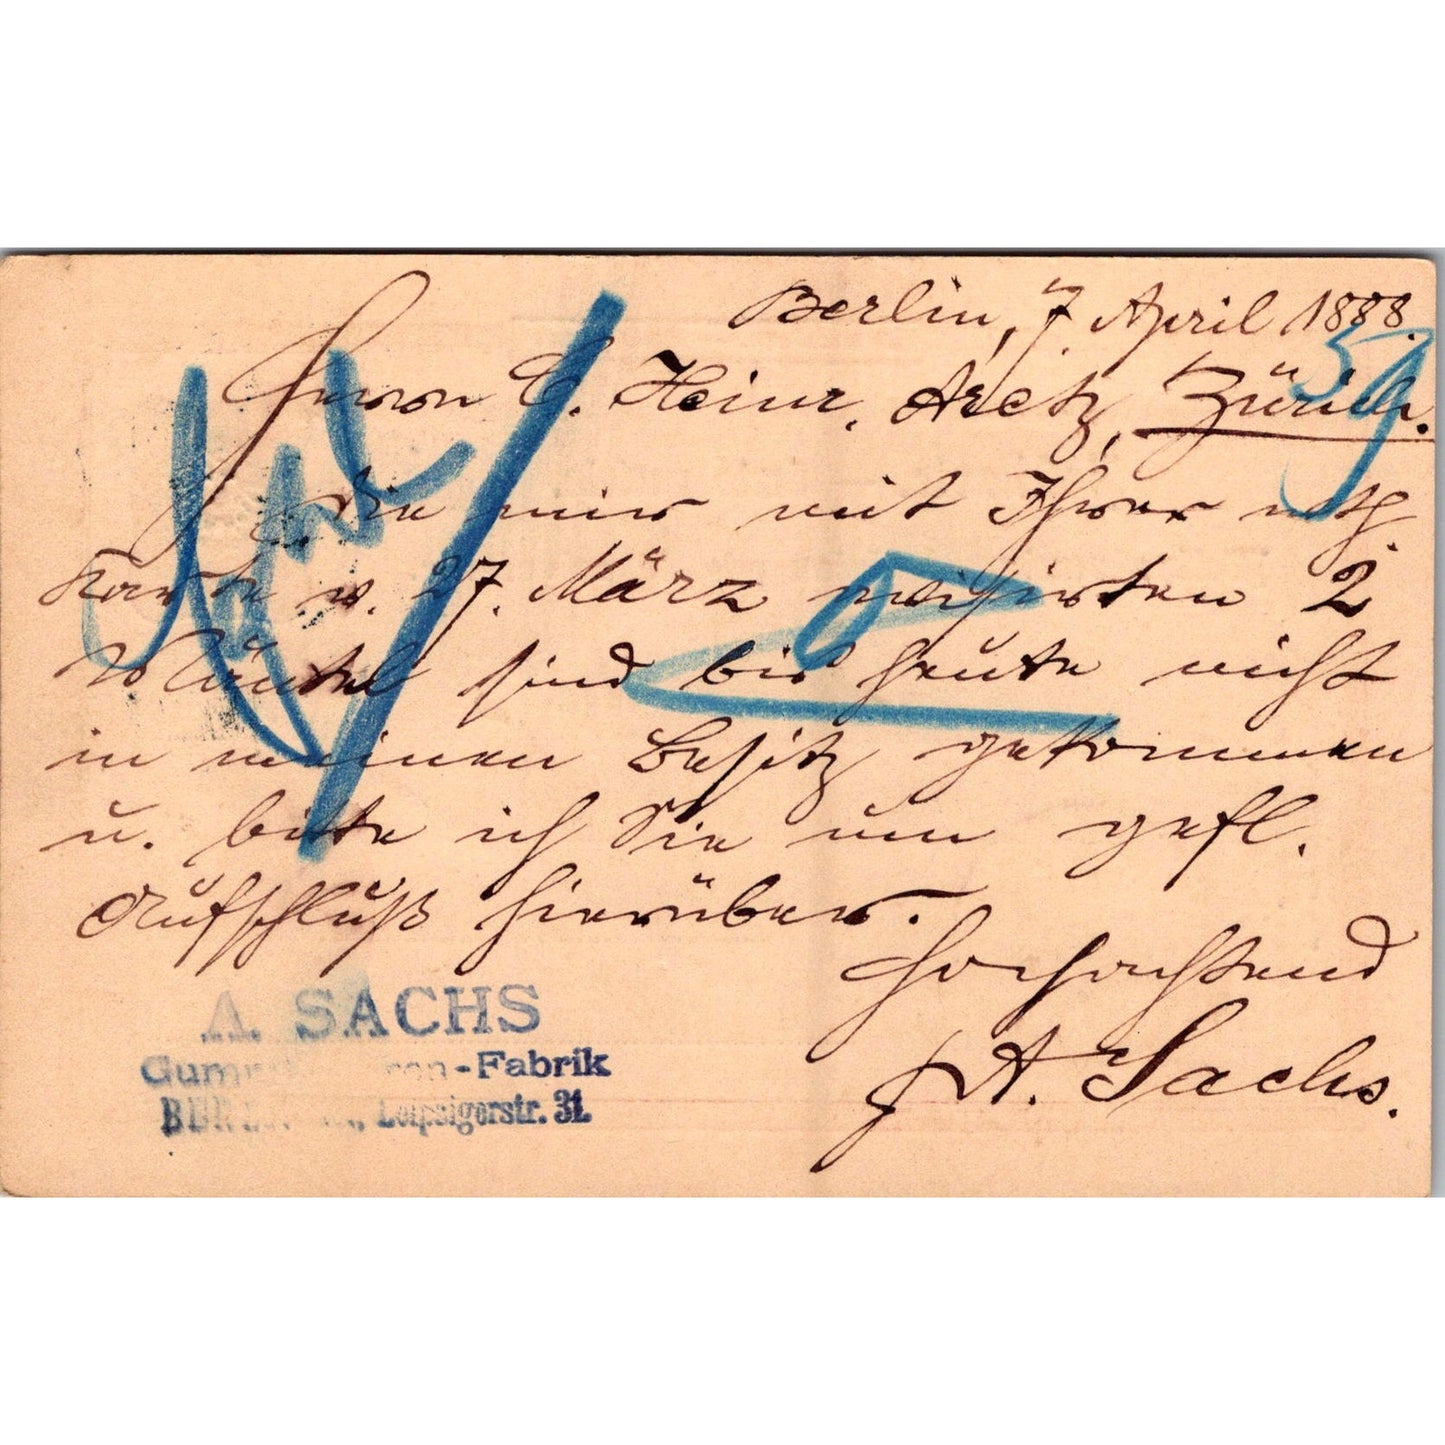 Berlin, 7. April 1888.
59
Herrn C. Heinr. Aretz, Zürich.
Die mir mit Ihrer
Karte v. 27. März avisirten 2
Mäntel sind bis heute nicht
in meinen Besitz gekommen
u. bitte ich Sie um gefl.
Aufschluß hierüber.
Hochachtend
A. Sachs.
A. SACHS
-Fabrik
Leipzigerstr. 31.